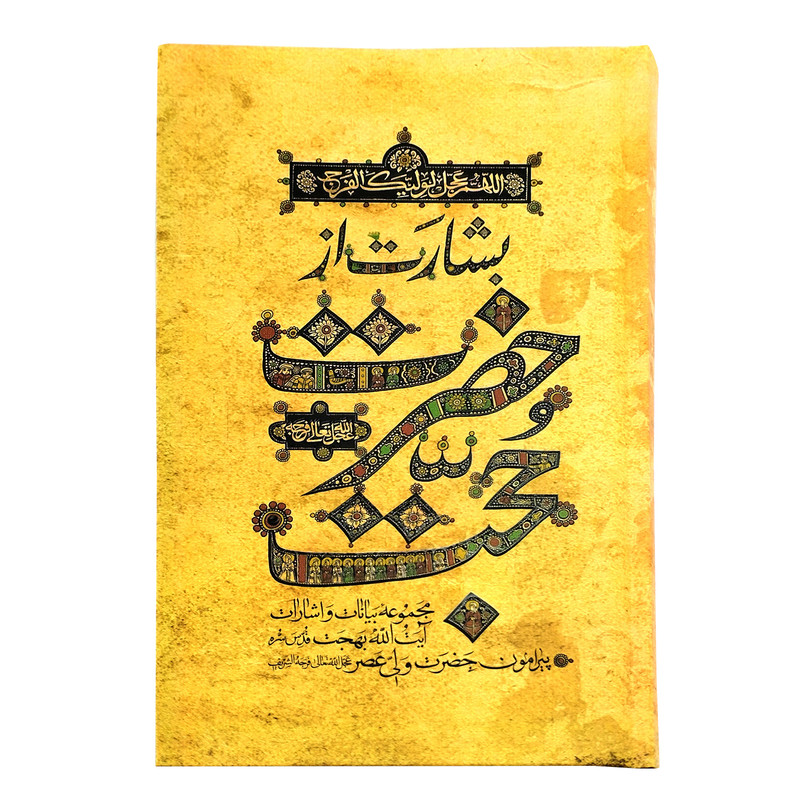 اللهم عجل لولیک الفرج
بشارت از
حضرت
عجل الله تعالی فرجه
حُجّت
مجموعه بیانات و اشارات
آیت الله بهجت قدس سره
پیرامون حضرت ولی عصر عجل الله تعالی فرجه الشریف